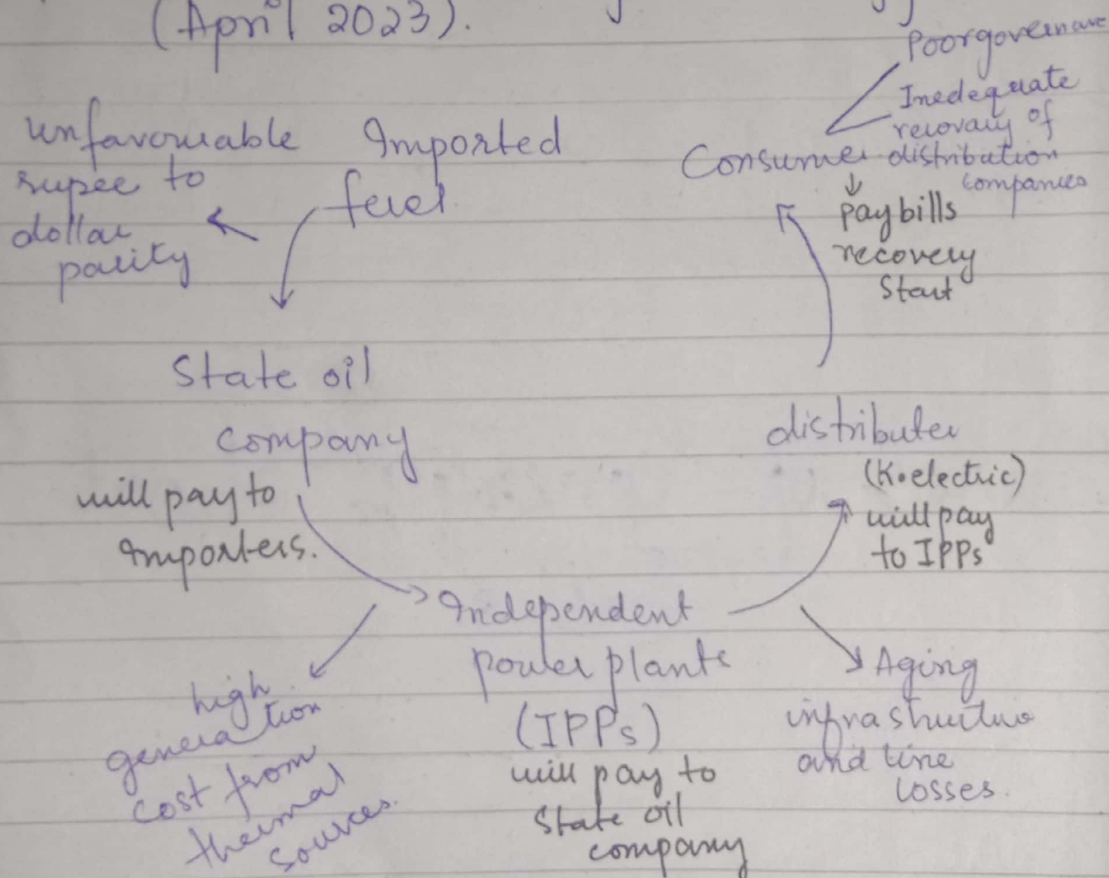 (April 2023).
Poor governance
Inedequate
recovary of
distribution
companies
unfavourable
rupee to
dollar
parity
Imported
fuel
Consumer
pay bills
recovery
Start
State oil
company
will pay to
importers.
distributer
(K.electric)
will pay
to IPPs
Independent
power plants
(IPPs)
will pay to
State oil
company
high
generation
cost from
thermal
sources.
Aging
infrastructure
and line
losses.